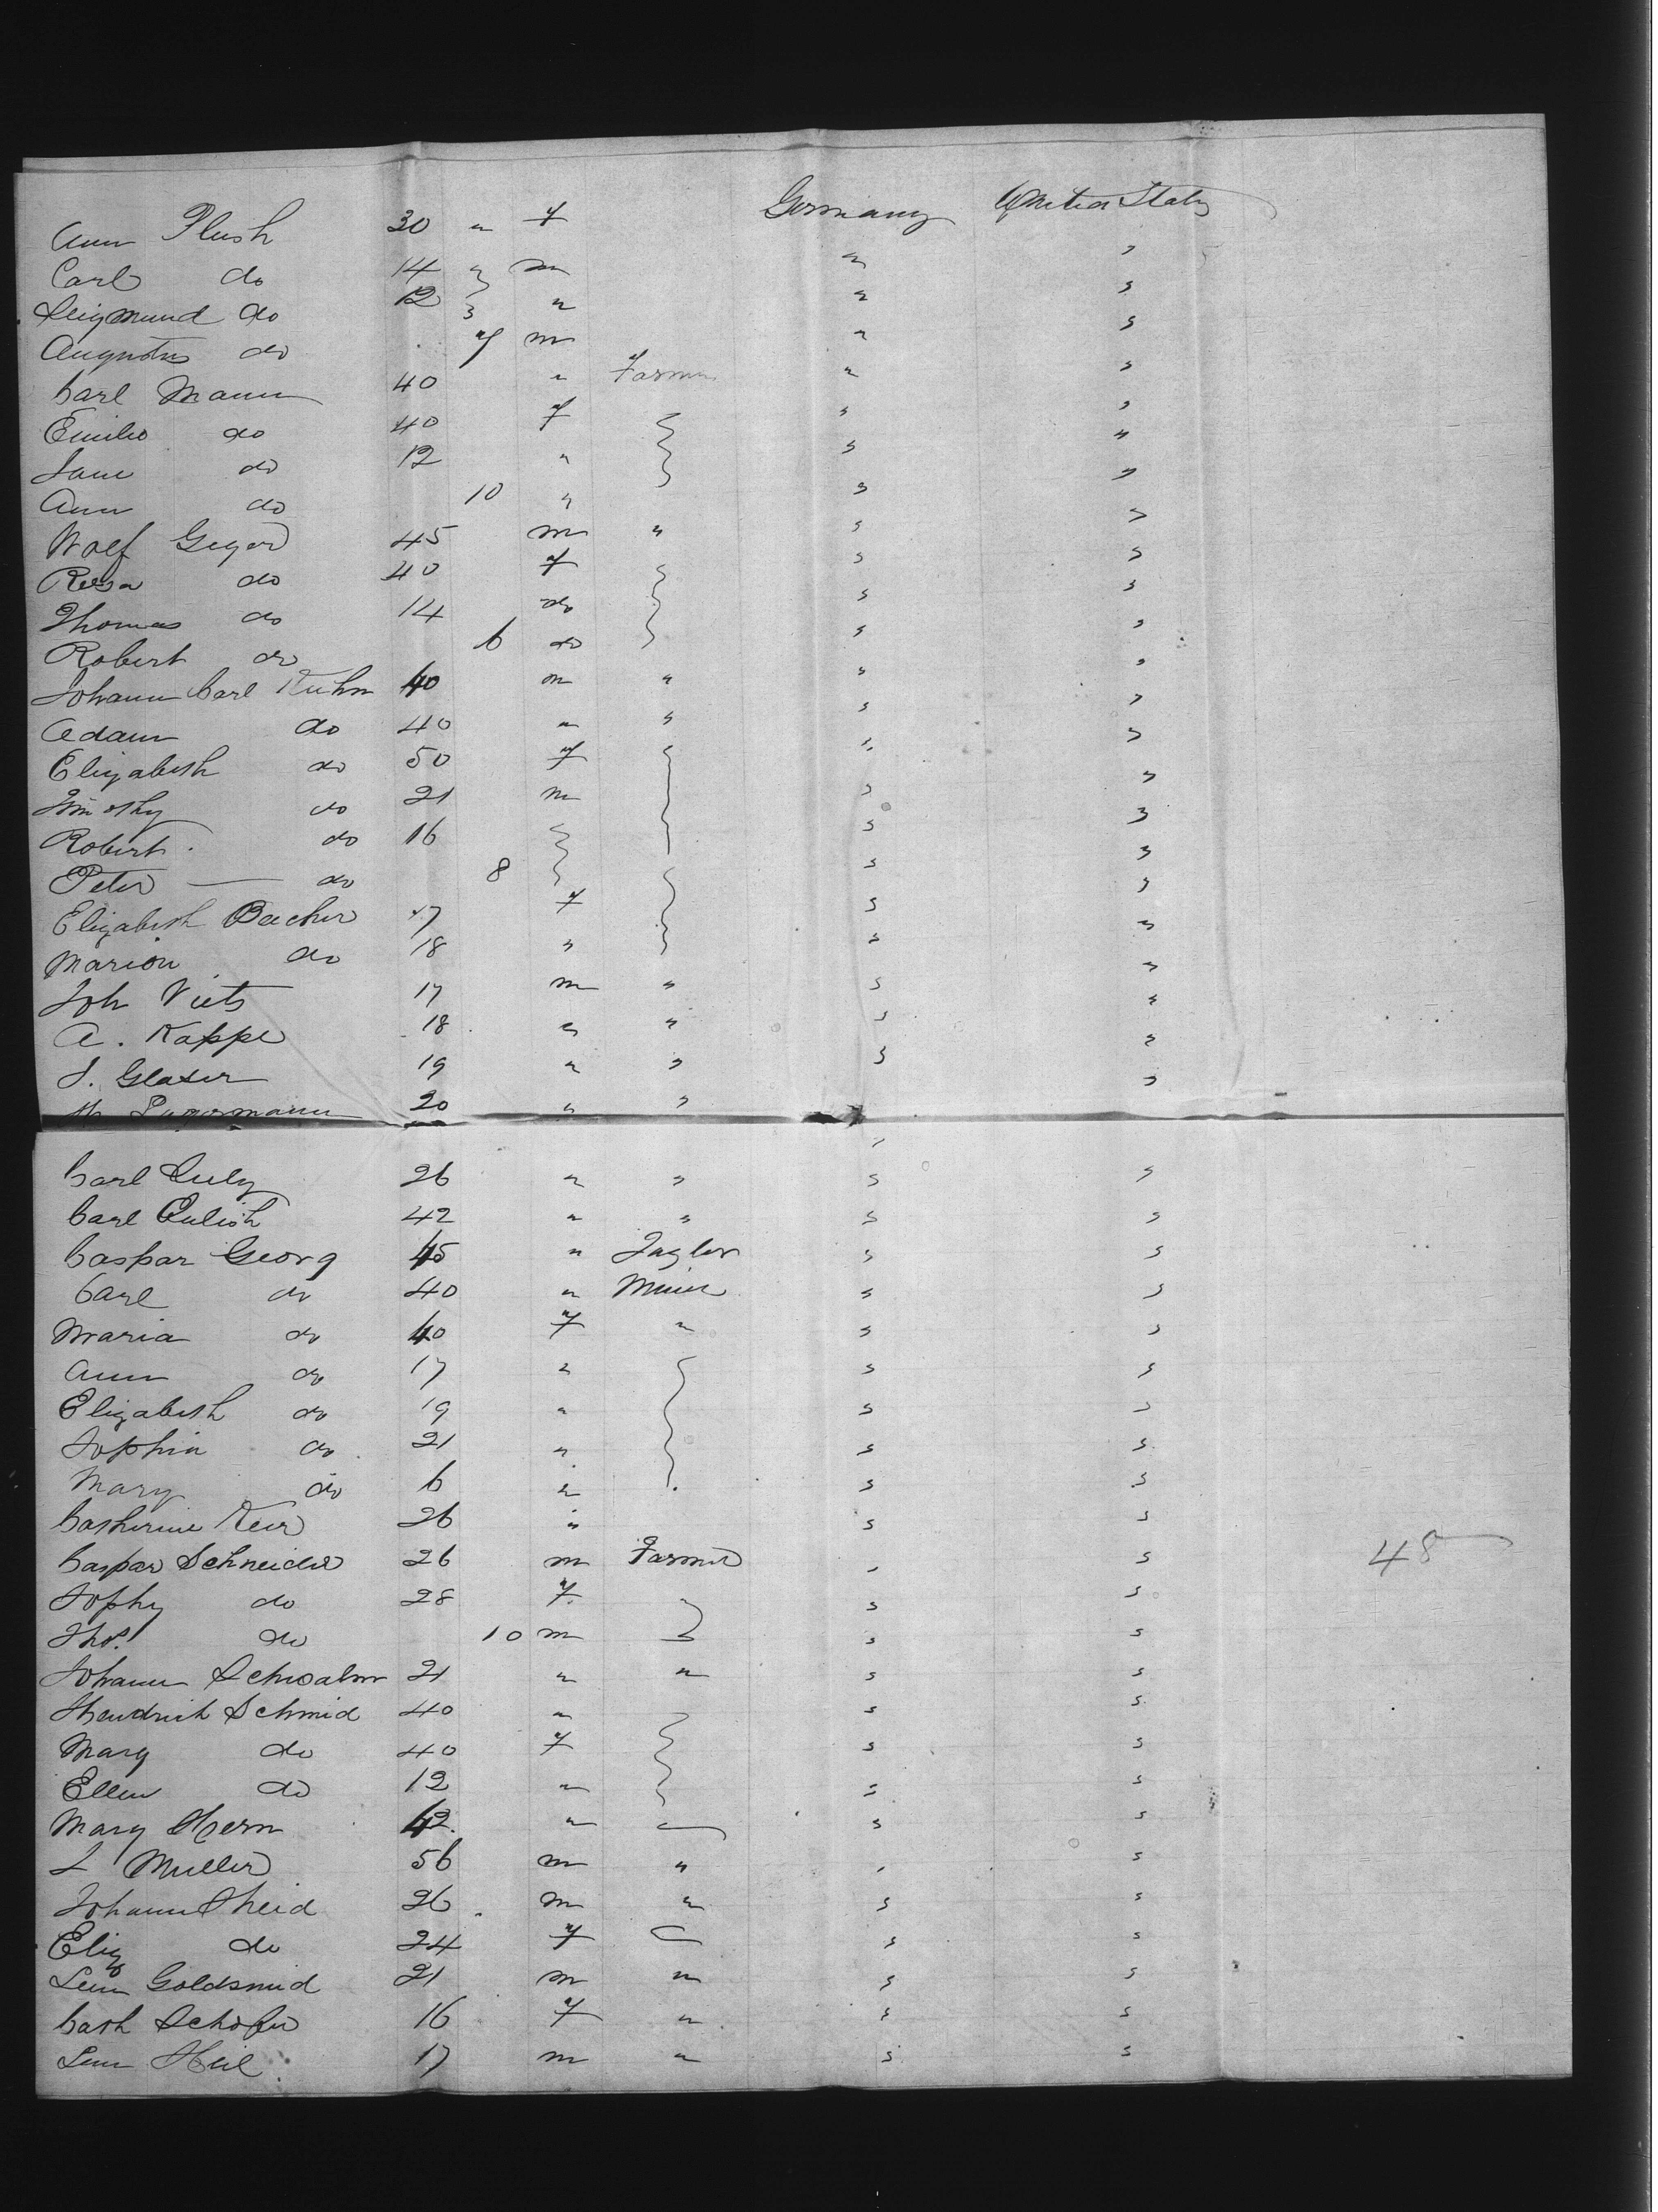 Ann Plush 30 " f Germany United States
Carl do 14 " m " "
Seigmund do 12 " " " "
Augustus do m " "
Carl Mann 40 " Farmer " "
Emilie do 40 f " "
Jane do 12 " " "
Ann do 10 " " "
Wolf Geyer 45 m " " "
Resa do 40 f " "
Thomas do 14 do " "
Robert do 6 do " "
Johann Carl Kuhn 40 m " " "
Adam do 40 " " " "
Elizabeth do 50 f " "
Timothy do 21 m " "
Robert do 16 " "
Peter — do 8 " "
Elizabeth Bacher 17 f " "
Marion do 18 " " "
Joh Viets 17 m " " "
A. Kappe 18 " " " "
J. Glaser 19 " " " "
20 " " " "
Carl 26 " " " "
Carl Eulish 42 " " " "
Caspar Georg 45 " Taylor " "
Carl do 40 " Miner " "
Maria do 40 f " " "
Ann do 17 " " "
Elizabeth do 19 " " "
Sophia do 21 " " "
Mary do 6 " " "
Catherine Keir 26 " " "
Caspar Schneider 26 m Farmer " " 48
Sophy do 28 f " "
Thos. do 10 m " "
Johann Schwalm 21 " " " "
Hendrich Schmid 40 " " "
Mary do 40 f " "
Ellen do 12 " " "
Mary Hern 42 " " "
L Muller 56 m " " "
Johann Sheid 26 m " " "
Eliz do 24 f " "
Goldsmid 21 m " " "
Cath Schofer 16 f " " "
Heil 17 m " " "